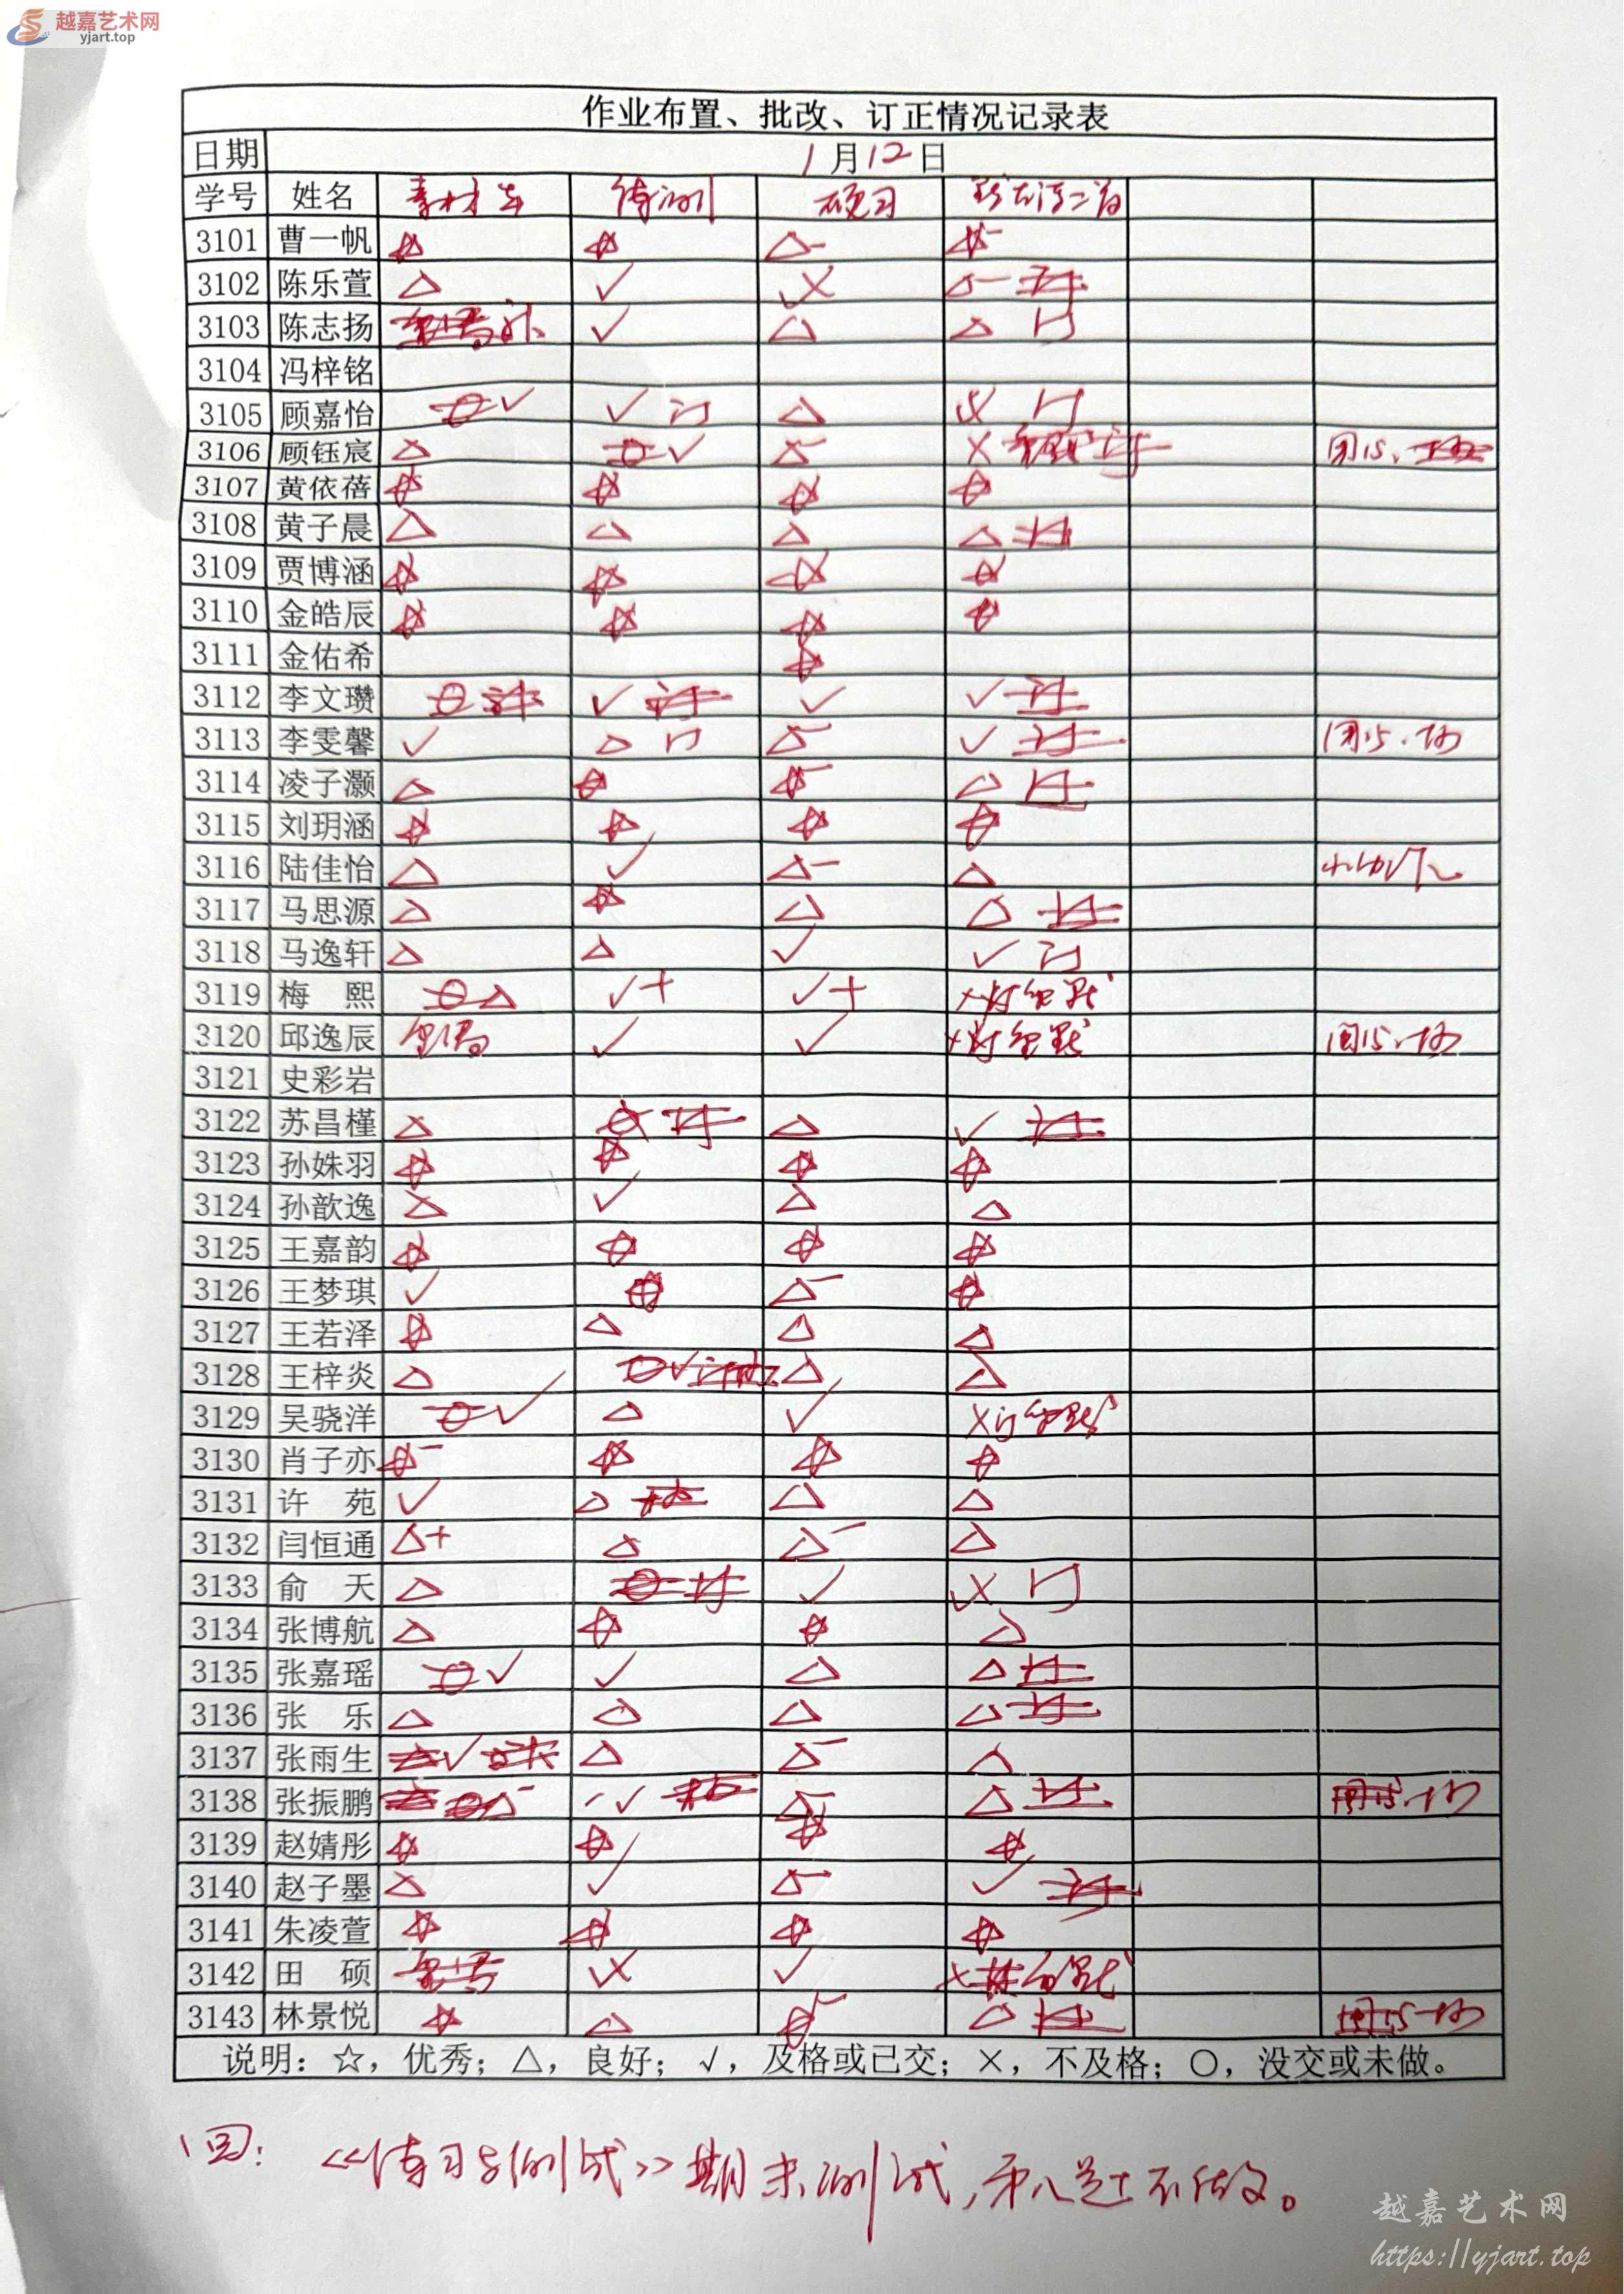 越嘉艺术网
yjart.top
作业布置、批改、订正情况记录表
日期 1月12日
学号 姓名 素材本 练测 硬习
3101 曹一帆 ☆ ☆ △- ☆-
3102 陈乐萱 △ √ △-
3103 陈志扬 √ △ △ 订
3104 冯梓铭
3105 顾嘉怡 √ √ 订 △ 订
3106 顾钰宸 △ √ △- ×
3107 黄依蓓 ☆ ☆ ☆ ☆
3108 黄子晨 △ △ △ △
3109 贾博涵 ☆ ☆ ☆ ☆
3110 金皓辰 ☆ ☆ ☆ ☆
3111 金佑希 ☆
3112 李文瓒 √ √ √
3113 李雯馨 √ △ 订 △- √
3114 凌子灏 △ ☆ ☆- △
3115 刘玥涵 ☆ ☆ ☆ ☆
3116 陆佳怡 △ √ △- △
3117 马思源 △ ☆ △ △
3118 马逸轩 △ △ √ √ 订
3119 梅 熙 △ √+ √+ ×
3120 邱逸辰 √ √ ×
3121 史彩岩
3122 苏昌槿 △ △ √
3123 孙姝羽 ☆ ☆ ☆ ☆
3124 孙歆逸 △ √ △ △
3125 王嘉韵 ☆ ☆ ☆ ☆
3126 王梦琪 √ ☆ △- ☆
3127 王若泽 ☆ △ △ △
3128 王梓炎 △ √ △ △
3129 吴骁洋 √ △ √ ×
3130 肖子亦 ☆- ☆ ☆ ☆
3131 许 苑 √ △ △ △
3132 闫恒通 △+ △ △- △
3133 俞 天 △ √ 订
3134 张博航 △ ☆ ☆ △
3135 张嘉瑶 √ √ △ △
3136 张 乐 △ △ △ △
3137 张雨生 √ △ △- △
3138 张振鹏 △- √ △- △
3139 赵婧彤 ☆ ☆ ☆ ☆
3140 赵子墨 △ √ △- √
3141 朱凌萱 ☆ ☆ ☆ ☆
3142 田 硕 √ ×
3143 林景悦 ☆ △ ☆- △
说明：☆，优秀；△，良好；√，及格或已交；×，不及格；○，没交或未做。
回：《练习与测试》期末测试，第八题不做。
越嘉艺术网
https://yjart.top